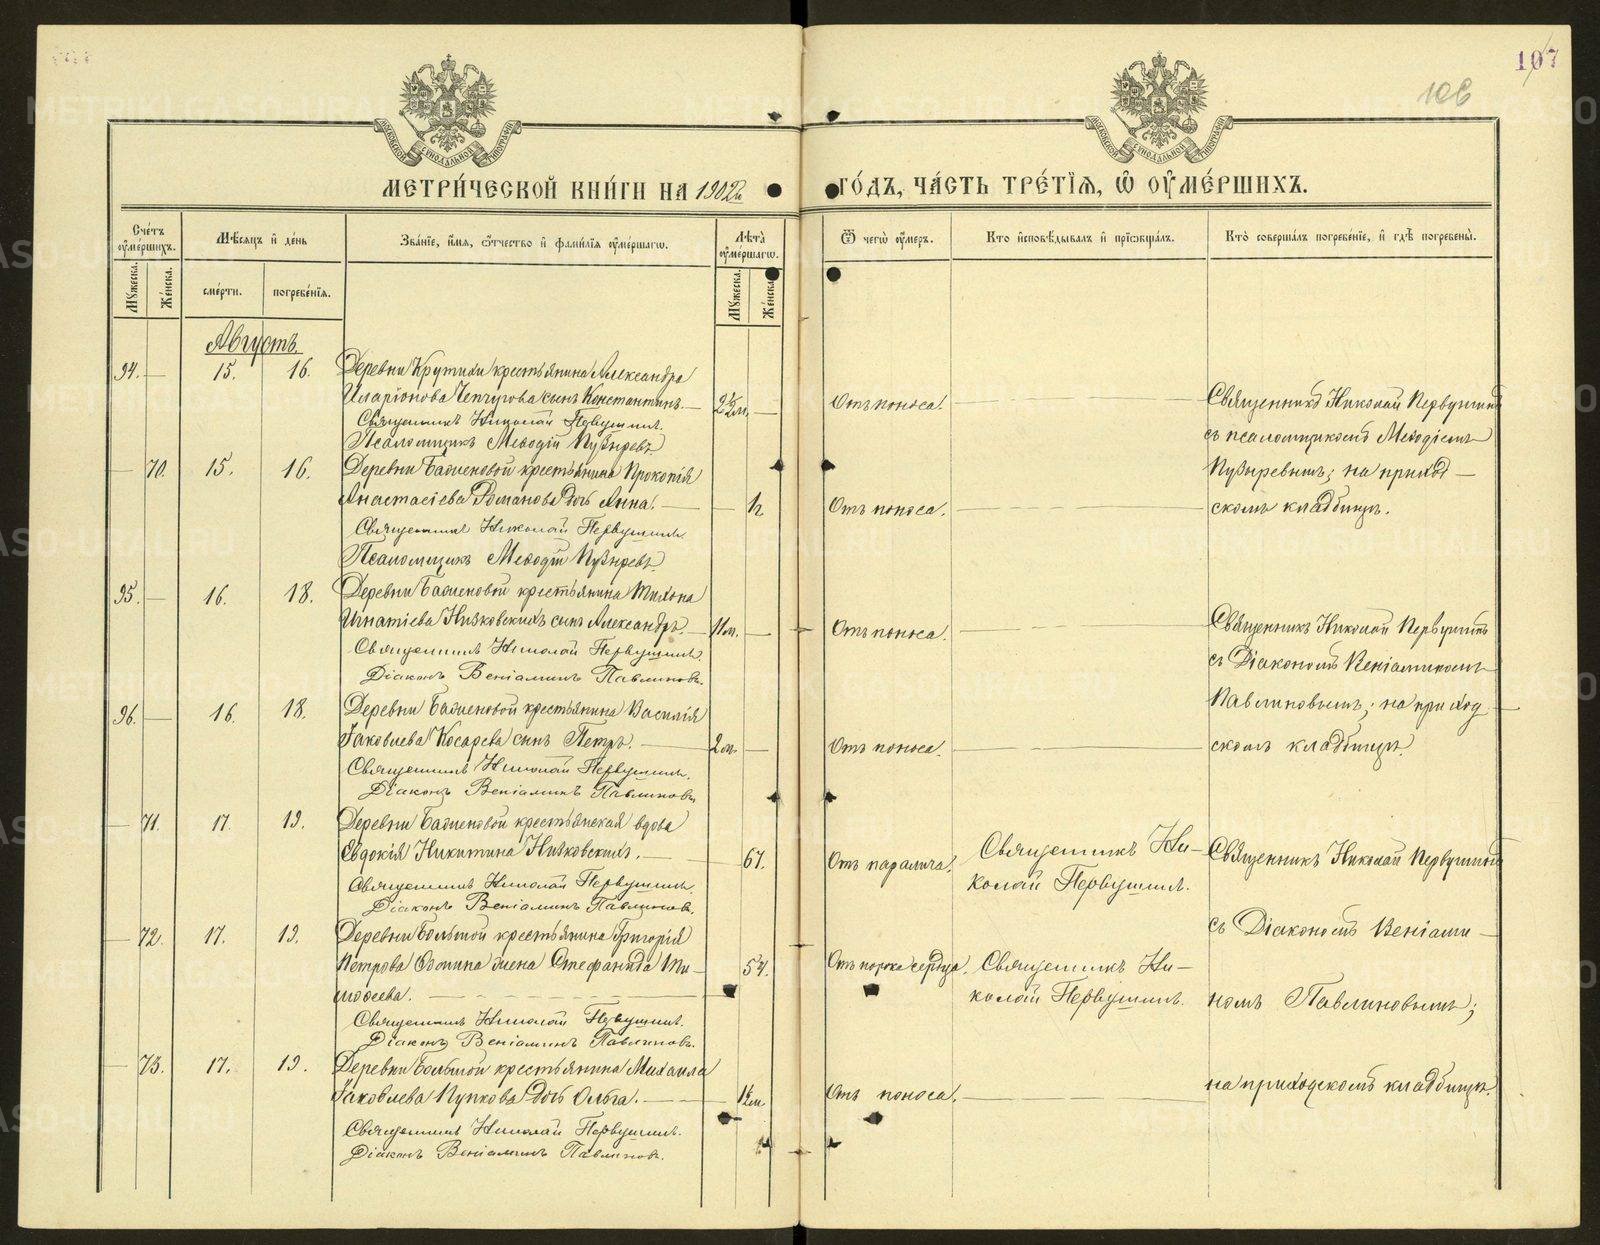 107
106
МОСКОВСКОЙ СѴНОДАЛЬНОЙ ТИПОГРАФІИ
МОСКОВСКОЙ СѴНОДАЛЬНОЙ ТИПОГРАФІИ
МЕТРИ́ЧЕСКОЙ КНИ́ГИ НА 1902й
ГО́ДЪ, ЧА́СТЬ ТРЕ́ТІѦ, Ѿ ОУ҆МЕ́РШИХЪ.
Сче́тъ оу҆ме́ршихъ. Мѣ́сѧцъ и҆ де́нь Зва́нїе, и҆́мѧ, ѻ҆́тчество и҆ фамилїѧ оу҆ме́ршагѡ. Лѣ́та оу҆ме́ршагѡ.
Ѿ чегѡ̀ оу҆́меръ. Кто̀ и҆сповѣ́дывалъ и҆ прїѡбща́лъ. Кто̀ соверша́лъ погребе́нїе, и҆ гдѣ̀ погребены̀.
Мꙋ́жеска. Же́нска. сме́рти. погребе́нїѧ. Мꙋ́жеска. Же́нска.
Августъ.
94. — 15. 16. Деревни Крутихи крестьянина Александра
Иларіонова Чепчугова сынъ Константинъ. — 2½м. —
Священникъ Николай Первушинъ.
Псаломщикъ Меѳодій Пузыревъ.
Отъ поноса.
Священникъ Николай Первушинъ
съ псаломщикомъ Меѳодіемъ
Пузыревымъ; на приход—
скомъ кладбищѣ.
— 70. 15. 16. Деревни Баженовой крестьянина Прокопія
Анастасіева Романова дочь Анна. —
Священникъ Николай Первушинъ
Псаломщикъ Меѳодій Пузыревъ.
Отъ поноса.
95. — 16. 18. Деревни Баженовой крестьянина Тихона
Игнатіева Низковскихъ сынъ Александръ. — 11м. —
Священникъ Николай Первушинъ.
Діаконъ Веніаминъ Павлиновъ.
Отъ поноса.
Священникъ Николай Первушинъ
съ Діакономъ Веніаминомъ
Павлиновымъ; на приход—
скомъ кладбищѣ.
96. — 16. 18. Деревни Баженовой крестьянина Василія
Іаковлева Косарева сынъ Петръ. — 2м. —
Священникъ Николай Первушинъ.
Діаконъ Веніаминъ Павлиновъ.
Отъ поноса.
— 71. 17. 19. Деревни Баженовой крестьянская вдова
Евдокія Никитина Низковскихъ. — 67.
Священникъ Николай Первушинъ.
Діаконъ Веніаминъ Павлиновъ.
Отъ паралича.
Священникъ Ни—
колай Первушинъ.
Священникъ Николай Первушинъ
съ Діакономъ Веніами—
номъ Павлиновымъ;
на приходскомъ кладбищѣ.
— 72. 17. 19. Деревни Большой крестьянина Григорія
Петрова жена Стефанида Ти— 54.
моѳеева. —
Священникъ Николай Первушинъ.
Діаконъ Веніаминъ Павлиновъ.
Отъ порока сердца.
Священникъ Ни—
колай Первушинъ.
— 73. 17. 19. Деревни Большой крестьянина Михаила
Іаковлева Пупкова дочь Ольга. — 1½м.
Священникъ Николай Первушинъ.
Діаконъ Веніаминъ Павлиновъ.
Отъ поноса.